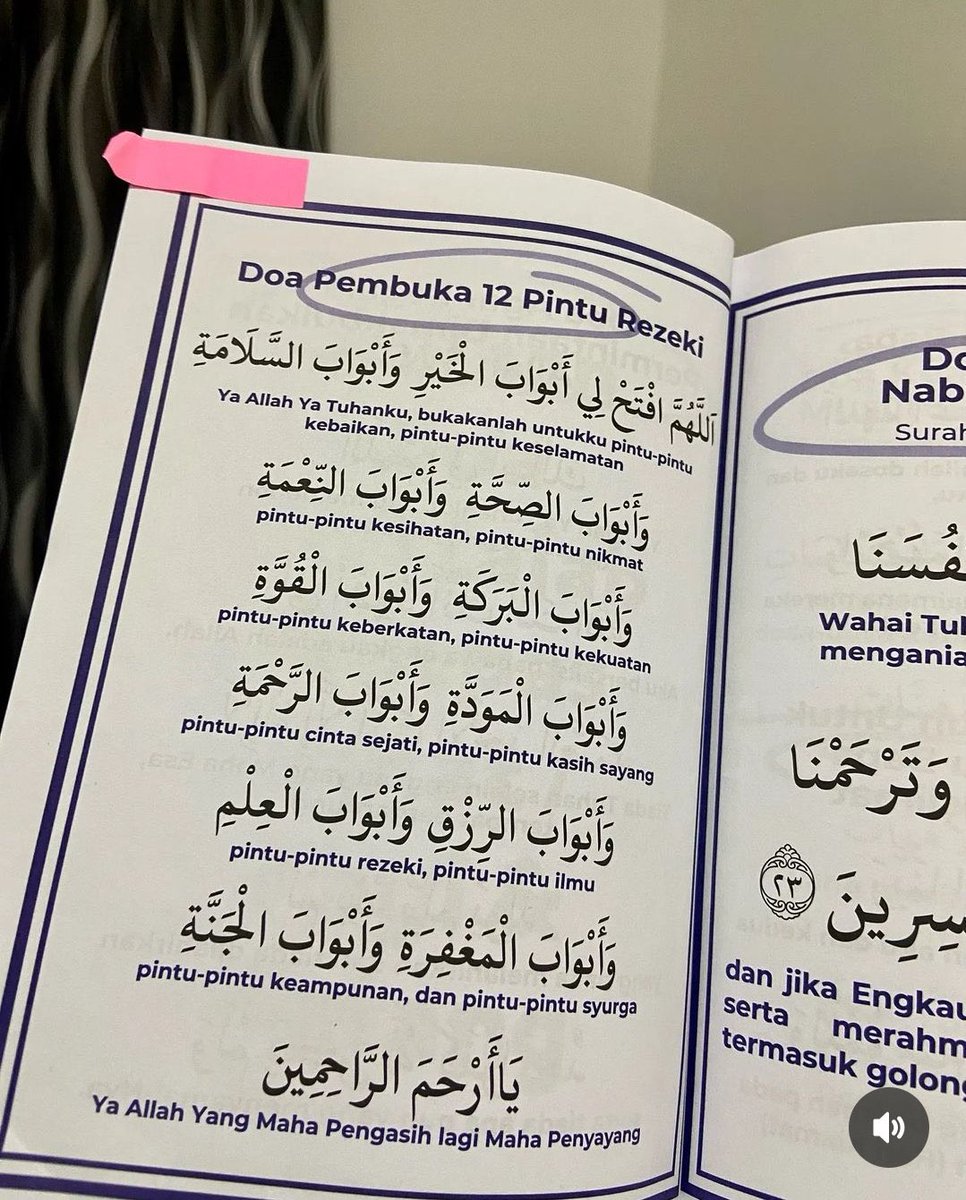 Doa Pembuka 12 Pintu Rezeki
اَللَّهُمَّ افْتَحْ لِي أَبْوَابَ الْخَيْرِ وَأَبْوَابَ السَّلَامَةِ
Ya Allah Ya Tuhanku, bukakanlah untukku pintu-pintu
kebaikan, pintu-pintu keselamatan
وَأَبْوَابَ الصِّحَّةِ وَأَبْوَابَ النِّعْمَةِ
pintu-pintu kesihatan, pintu-pintu nikmat
وَأَبْوَابَ الْبَرَكَةِ وَأَبْوَابَ الْقُوَّةِ
pintu-pintu keberkatan, pintu-pintu kekuatan
وَأَبْوَابَ الْمَوَدَّةِ وَأَبْوَابَ الرَّحْمَةِ
pintu-pintu cinta sejati, pintu-pintu kasih sayang
وَأَبْوَابَ الرِّزْقِ وَأَبْوَابَ الْعِلْمِ
pintu-pintu rezeki, pintu-pintu ilmu
وَأَبْوَابَ الْمَغْفِرَةِ وَأَبْوَابَ الْجَنَّةِ
pintu-pintu keampunan, dan pintu-pintu syurga
يَاأَرْحَمَ الرَّاحِمِينَ
Ya Allah Yang Maha Pengasih lagi Maha Penyayang
Do
Nab
Surah
فُسَنَا
Wahai Tul
mengania
وَتَرْحَمْنَا
سِرِينَ ٢٣
dan jika Engkau
serta merahm
termasuk golong